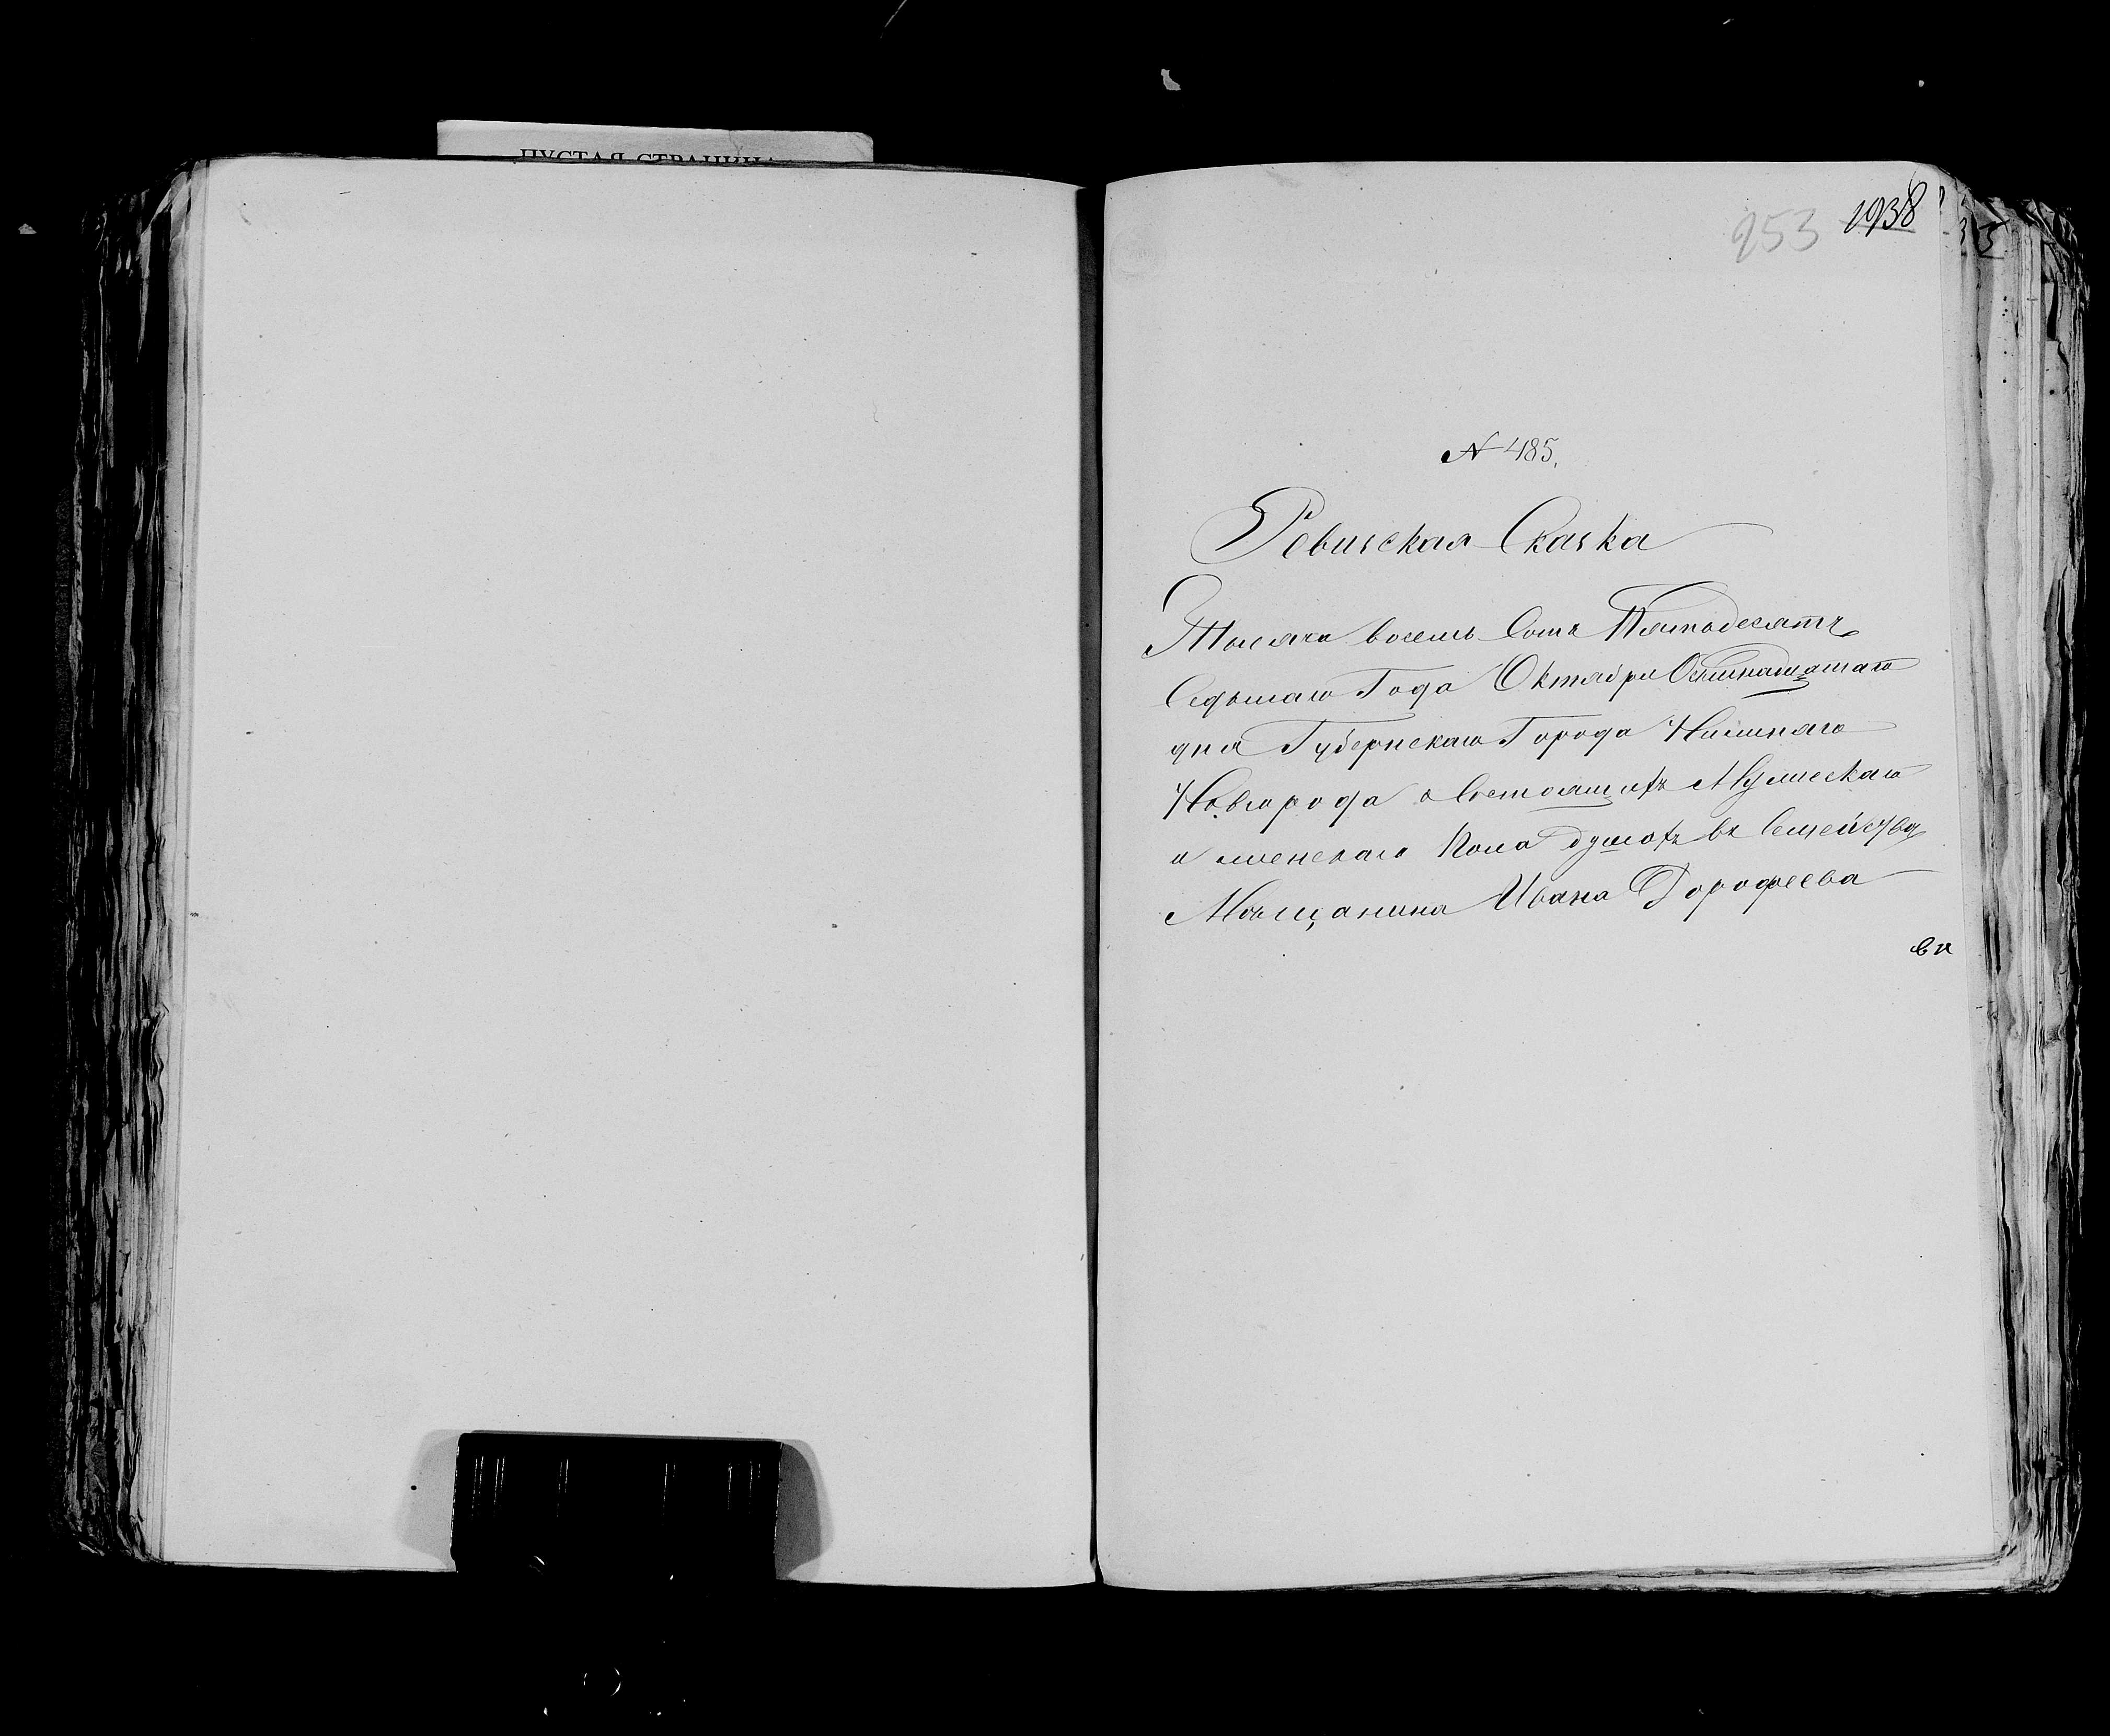 ПУСТАЯ СТРАНИЦА
953 1938
N 485.
Ревизская Сказка
Тысяча восемь Сотъ Пятьдесятъ
Седьмаго Года Октября Осьмнатцатаго
дня Губернскаго Города Нижняго
Новгорода о Состоящихъ Мужескаго
и женскаго пола душахъ въ Семействѣ
Мѣщанина Ивана Дорофеева